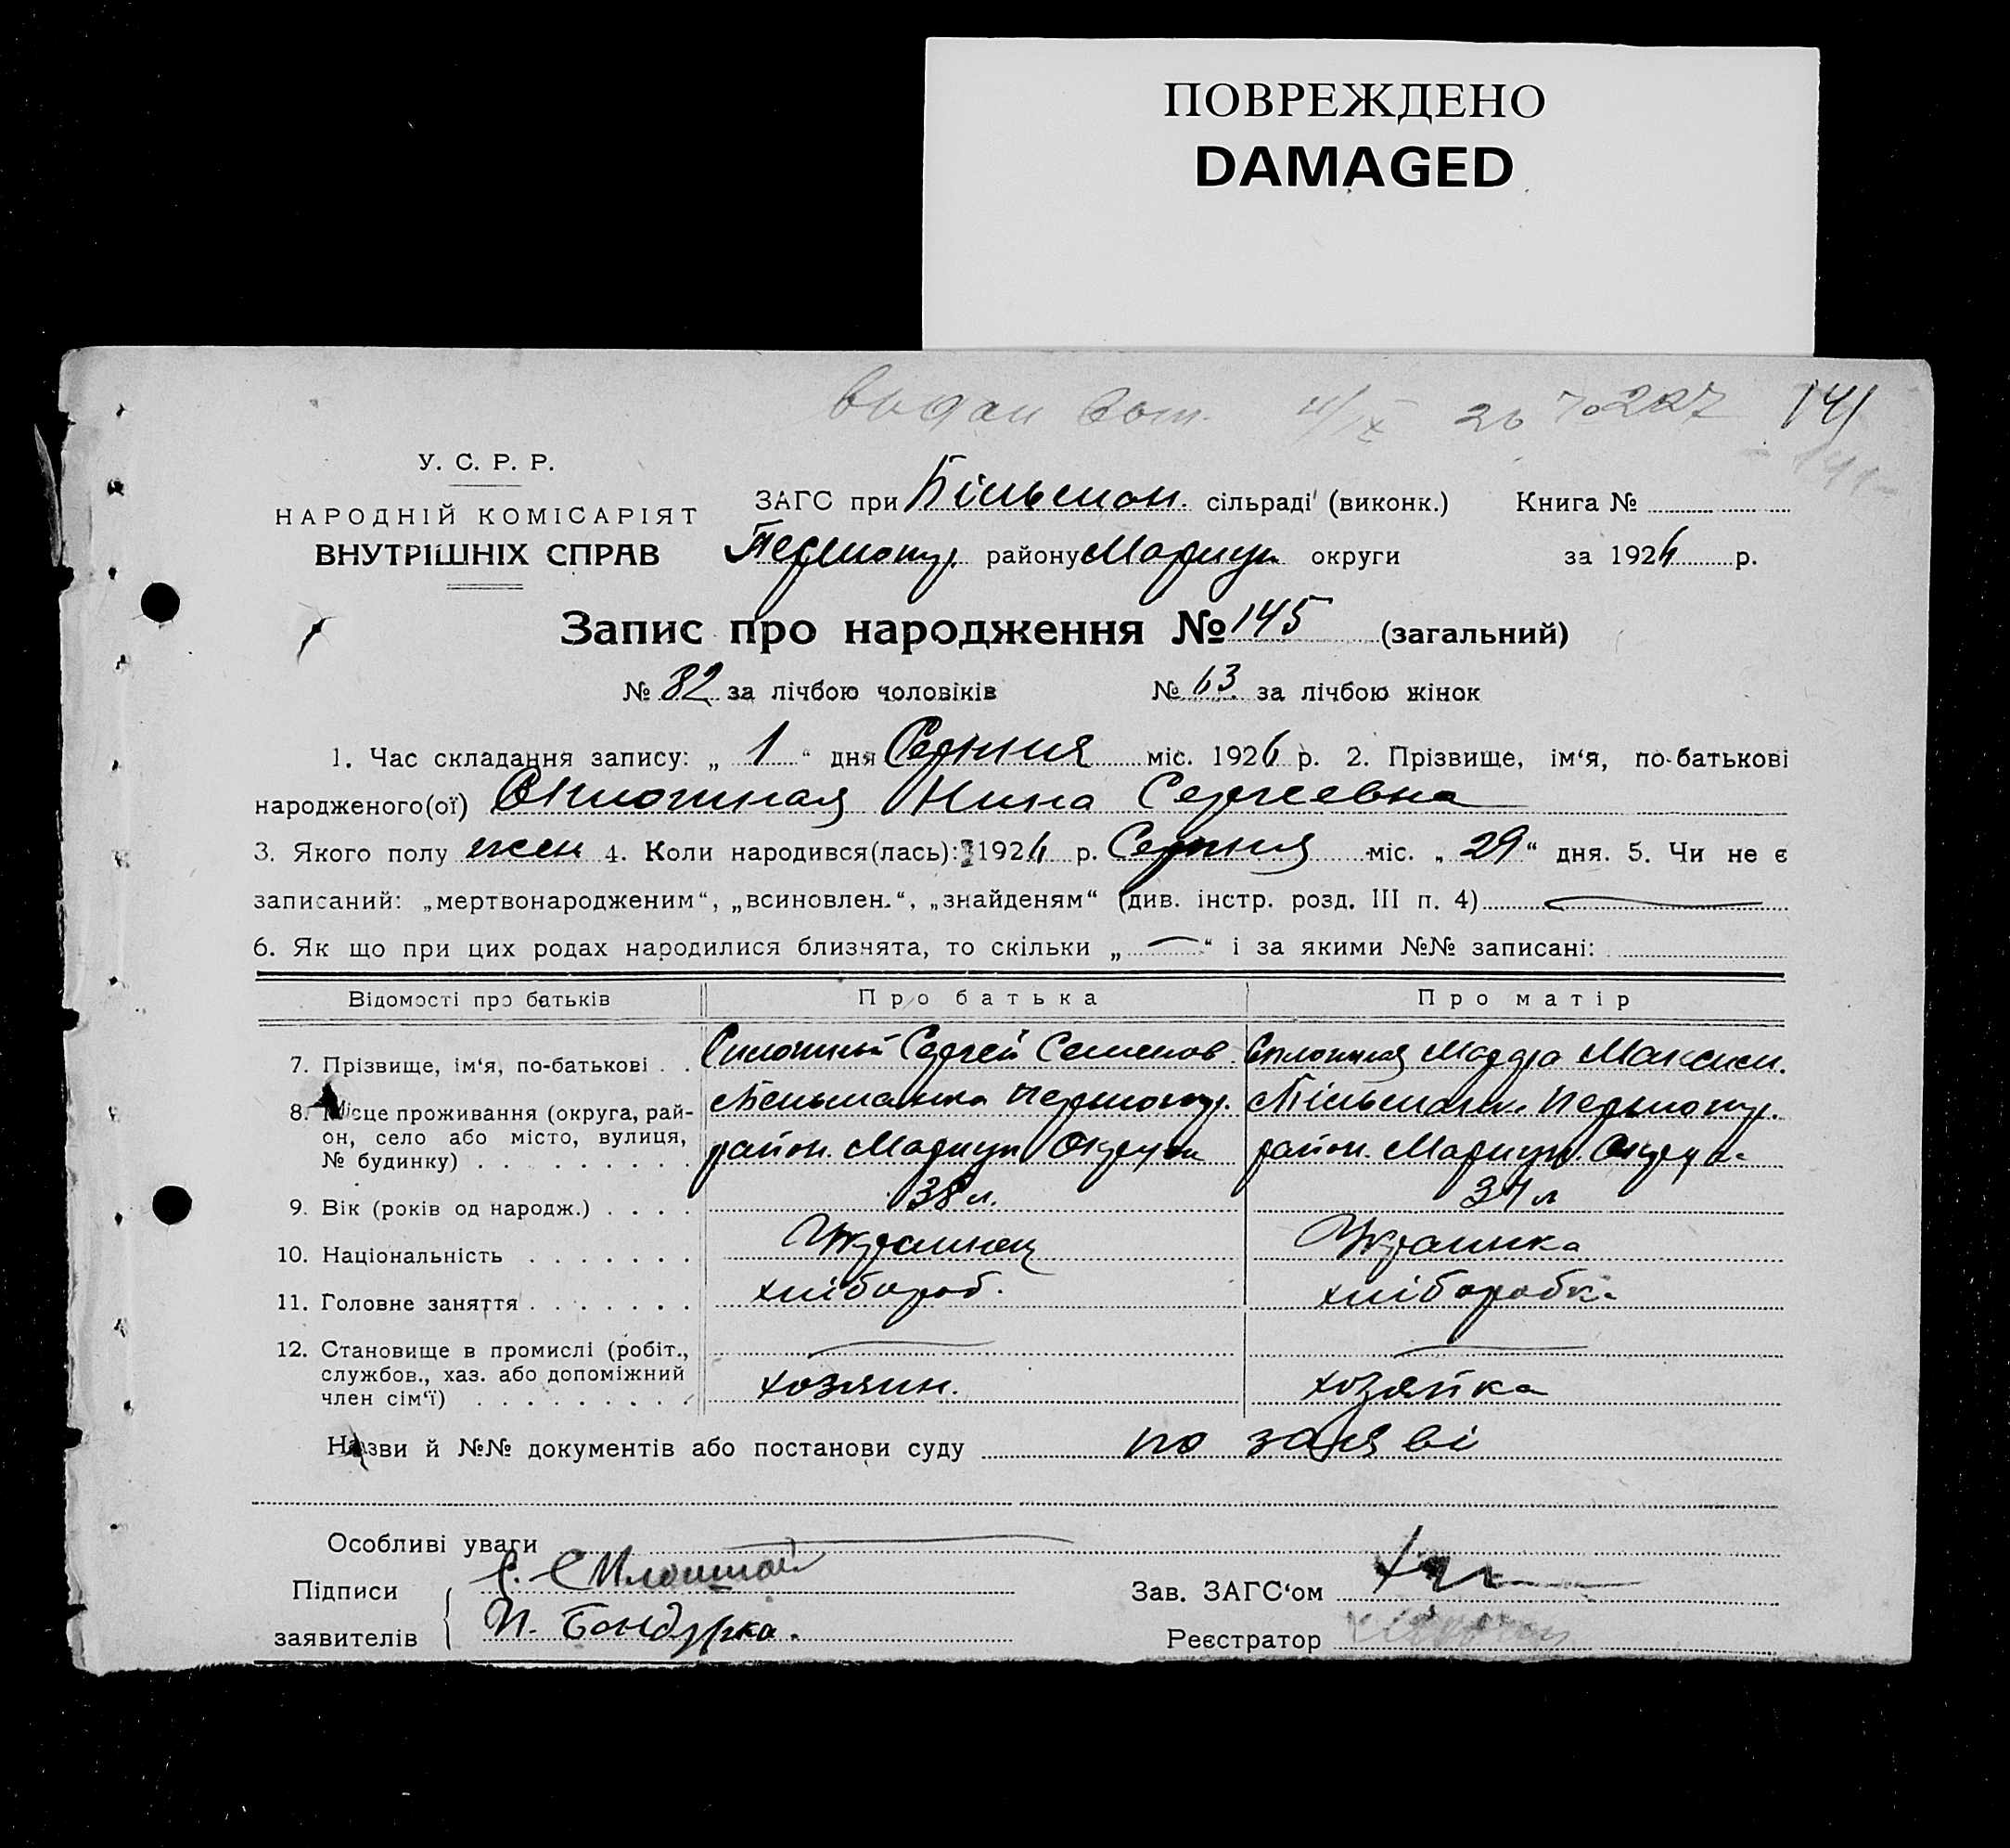 ПОВРЕЖДЕНО
DAMAGED
141
У. С. Р. Р.
НАРОДНІЙ КОМІСАРІЯТ
ВНУТРІШНІХ СПРАВ
ЗАГС при Більман. сільраді (виконк.) Книга №
Першотр. району Маріуп округи за 1926 р.
Запис про народження № 145 (загальний)
№ 82 за лічбою чоловіків № 63 за лічбою жінок
1. Час складання запису: „ 1 “ дня Серпня міс. 1926 р. 2. Прізвище, ім‘я, по-батькові
народженого(ої) Сплошная Нина Сергеевна
3. Якого полу жен 4. Коли народився(лась): 1926 р. Серпня міс. „ 29 “ дня. 5. Чи не є
записаний: „мертвонародженим“, „всиновлен.“, „знайденям“ (див. інстр. розд. III п. 4)
6. Як що при цих родах народилися близнята, то скільки „ — “ і за якими №№ записані:
Відомості про батьків Про батька Про матір
7. Прізвище, ім‘я, по-батькові . . Сплошной Сергей Семенов. Сплошная Максим.
8. Місце проживання (округа, рай-
он, село або місто, вулиця,
№ будинку) . . . . . . . . .
район. Мариуп Округи район. Мариуп. Округи
9. Вік (років од народж.) . . . . 38 л. 34 л
10. Національність . . . . . . . Украинец Украинка
11. Головне заняття . . . . . . . хлібороб. хлiборобка
12. Становище в промислі (робіт.,
службов., хаз. або допоміжний
член сім‘ї) . . . . . . . . . хозяин. хозяйка
Назви й №№ документів або постанови суду по заяві
Особливі уваги
Підписи С. Сплошной Зав. ЗАГС‘ом
заявителів И. Бондурка. Реєстратор